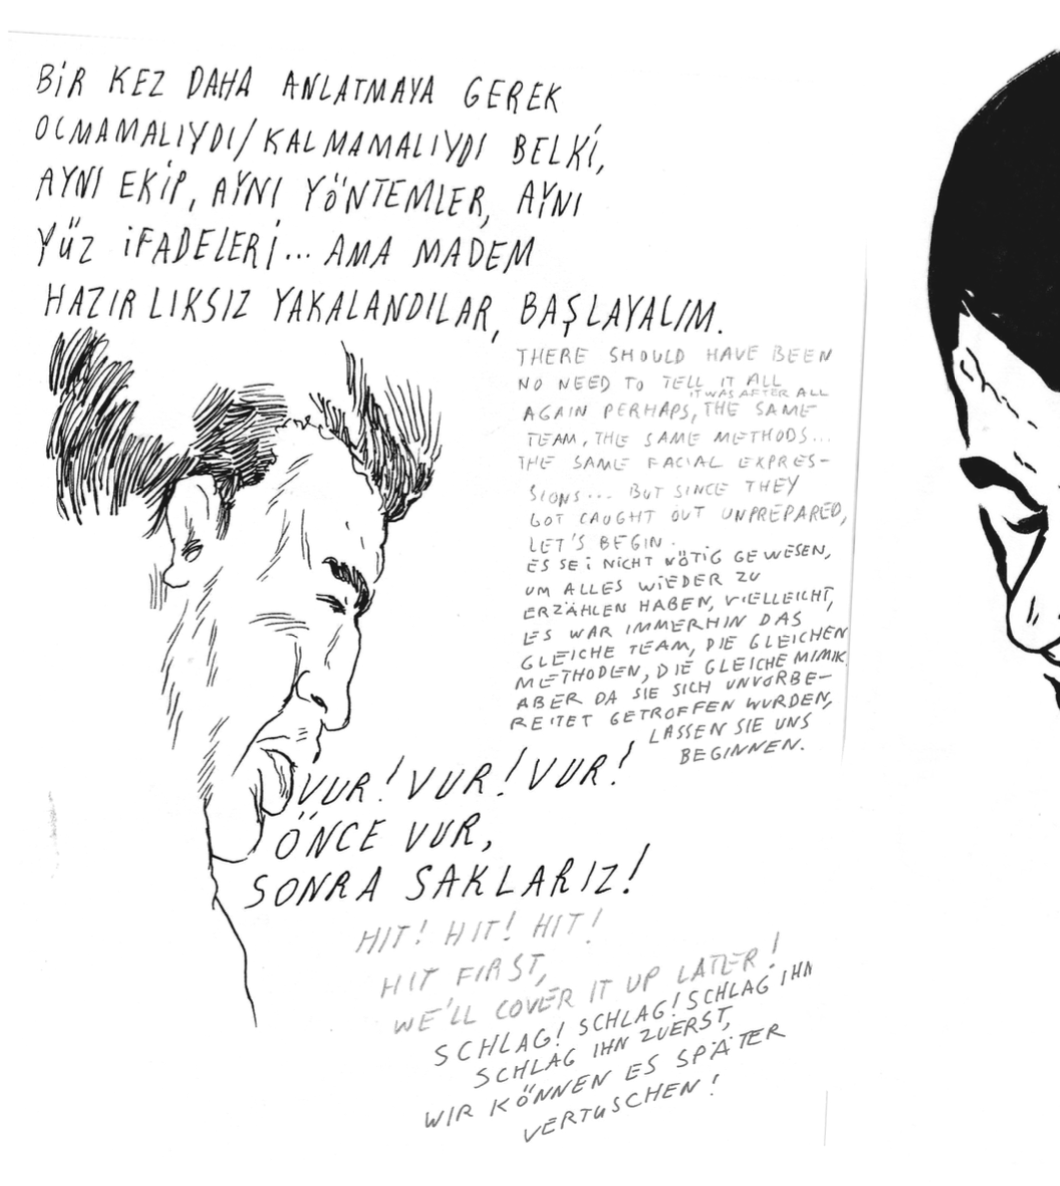 BİR KEZ DAHA ANLATMAYA GEREK
OLMAMALIYDI/KALMAMALIYDI BELKİ,
AYNI EKİP, AYNI YÖNTEMLER, AYNI
YÜZ İFADELERİ... AMA MADEM
HAZIRLIKSIZ YAKALANDILAR, BAŞLAYALIM.
THERE SHOULD HAVE BEEN
NO NEED TO TELL IT ALL
IT WAS AFTER ALL
AGAIN PERHAPS, THE SAME
TEAM, THE SAME METHODS...
THE SAME FACIAL EXPRES-
SIONS... BUT SINCE THEY
GOT CAUGHT OUT UNPREPARED,
LET'S BEGIN.
ES SEi NiCHT NÖTiG GEWESEN,
UM ALLES WiEDER ZU
ERZÄHLEN HABEN, ViELLEICHT,
ES WAR IMMERHIN DAS
GLEICHE TEAM, DIE GLEICHEN
METHODEN, DIE GLEICHE MIMIK.
ABER DA SIE SICH UNVORBE-
REITET GETROFFEN WURDEN,
LASSEN SIE UNS
BEGINNEN.
VUR! VUR! VUR!
ÖNCE VUR,
SONRA SAKLARIZ!
HIT! HIT! HIT!
HIT FIRST,
WE'LL COVER IT UP LATER!
SCHLAG! SCHLAG! SCHLAG IHN
SCHLAG IHN ZUERST,
WIR KÖNNEN ES SPÄTER
VERTUSCHEN!